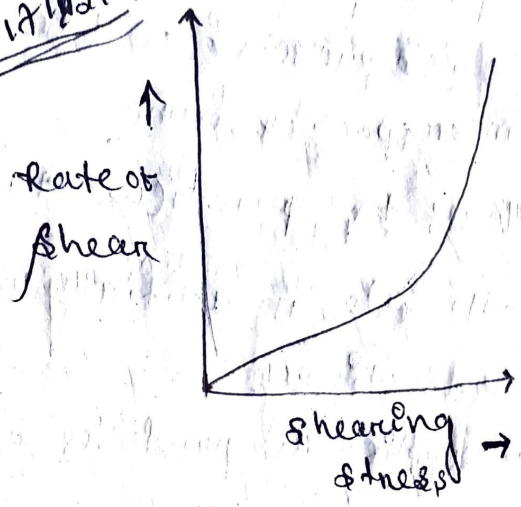 Rate of
shear
shearing
stress